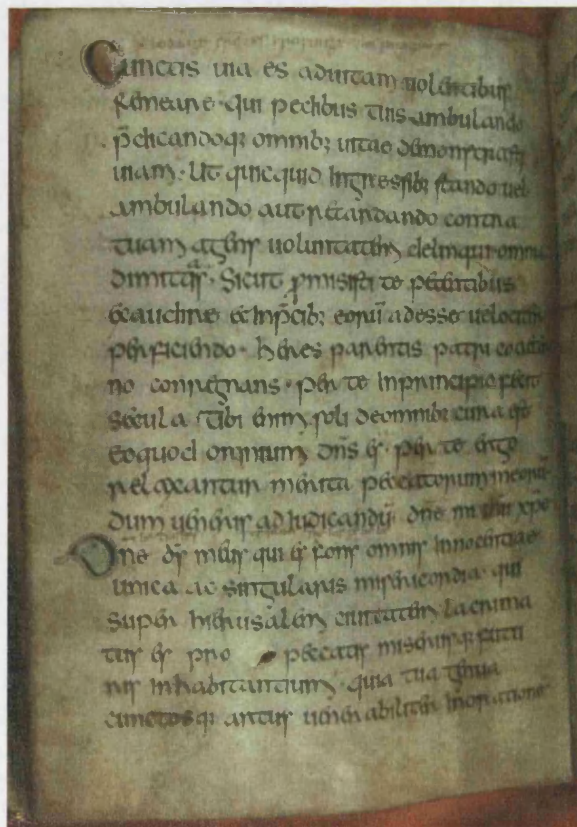 Cunctis uia es aduitam uolentibus
remeare · qui pedibus tuis ambulando
p̄dicandoq; omnib; uitae demonstrasti
uiam · Ut quicquid ingressib; stando uel
ambulando aut retardando contra
tuam agens uoluntatem deliqui omnia
dimittas · Sicut promisisti te petentibus
exaudire et inp̄cib; eorū adesse uelociter
perficiendo · heres parentis patri coaeter
no conregnans · per te inprincipio
secula Tibi enim soli deomnib; cura est
eoquod omnium dn̄s es · per te ergo
relaxantur peccatorum meorum
dum ueneris ad iudicandū dn̄e mi ihu xp̄e
Dne ds̄ meus qui es fons omnis innocentiae
unica ac singularis misericordia · qui
super hierusalem ciuitatem lacrima
tus es pro peccatis miserisq; futu
ris inhabitantium · quia tua genua
cunctosq; artus uenerabiliter inoratione